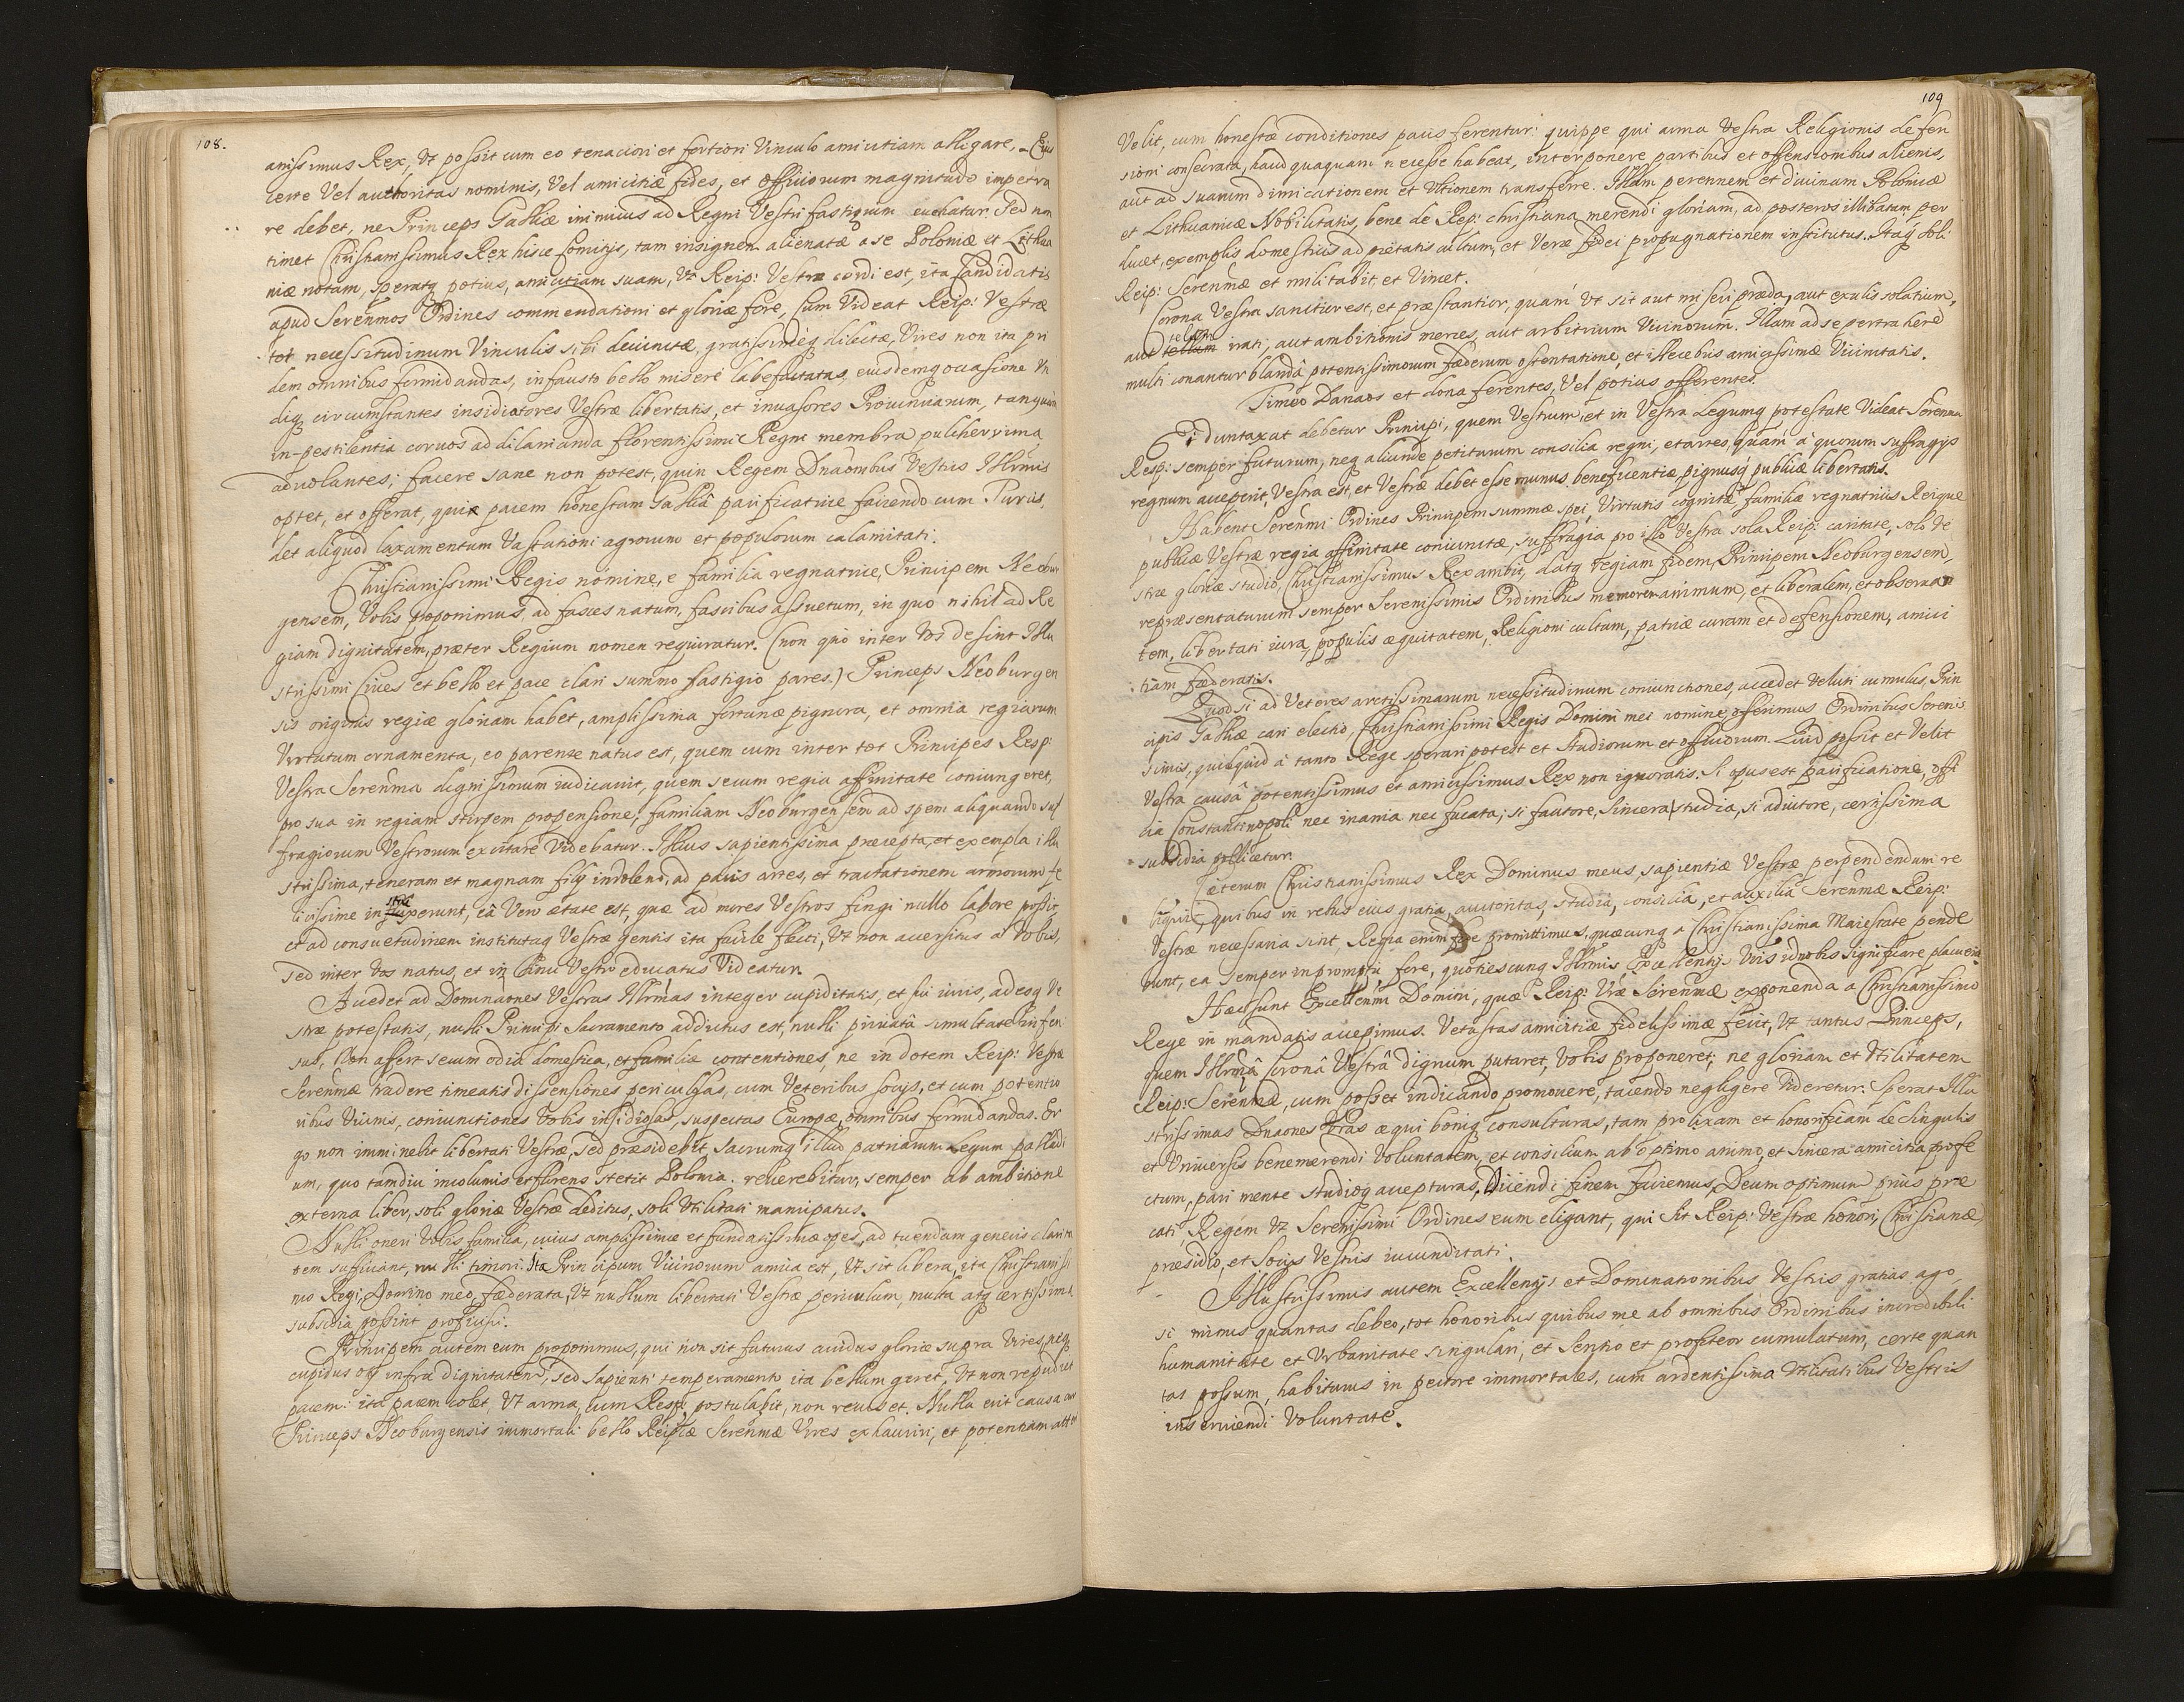 108.
anissimus Rex, Vt possit cum eo tenaciori et fortiori Vinculo amicitiam alligare, Eius
certe Vel authoritas nominis, Vel amicitiæ fides, et Officiorum magnitudo impetra
re debet, ne Princeps Galliæ inimicus ad Regni Vestri fastigium euehatur. Sed non
timet Christianissimus Rex hisce Comitijs, tam insignem alienatæ a se Poloniæ et Lithua
niæ notam, speratq potius, amicitiam suam, Vt Reip: Vestræ cordi est, ita Candidatis
apud Serenmos Ordines commendationi et gloriæ fore, Cum Videat Reip: Vestræ
tot necessitudinum Vinculis sibi deuinctæ, gratissimeq dilectæ, Vires non ita pri
dem omnibus formidandas, infausto bello miserè labefactatas, eiusdemq occasione Vn
diq circumstantes insidiatores Vestræ libertatis, et inuasores Prouinciarum, tanquam
in pestilentia coruos ad dilanianda florentissimi Regni membra pulcherrima
aduolantes; facere sane non potest, quin Regem Dnaonibus Vestris Illrmis
optet, et offerat, qui pacem honestam Galliâ pacificatrice faciendo cum Turcis,
det aliquod laxamentum Vastationi agrorum et populorum calamitati.
Christianissimi Regis nomine, e familia regnatrice, Principem Neobur
gensem, Vobis proponimus ad fasces natum, fascibus assuetum, in quo nihil ad Re
giam dignitatem, præter Regium nomen requiratur. (non quò inter Vos desint Illu
strissimi Ciues et bello et pace clari summo fastigio pares.) Princeps Neoburgen
sis originis regiæ gloriam habet, amplissima fortunæ pignora, et omnia regiarum
Virtutum ornamenta, eo parente natus est, quem cum inter tot Principes Resp:
Vestra Serenma dignissimum iudicauit, quem secum regia affinitate coniungeret,
pro sua in regiam stirpem propensione, familiam Neoburgensem ad spem aliquando suf
fragiorum Vestrorum excitare Videbatur. Illius sapientissima præcepta, et exempla illu
strissima, teneram et magnam filij indolem, ad pacis artes, et tractationem armorum fe
licissime instruxerunt, eâ Vero ætate est, quæ ad mores Vestros fingi nullo labore possit,
et ad consuetudinem institutaq Vestræ gentis ita facile flecti, Vt non accersitus a Vobis,
sed inter Vos natus, et in Sinu Vestro educatus Videatur.
Accedet ad Dominaones Vestras Illrmas integer cupiditatis, et sui iuris, adeoq Ve
stræ potestatis, nulli Principi Sacramento addictus est, nulli priuatâ simultate infen
sus, Non affert secum odia domestica, et familiæ contentiones, ne in dotem Reip: Vestræ
Serenmæ tradere timeatis dissensiones periculosas, cum Veteribus socijs, et cum potentio
ribus Vicinis, coniunctiones Vobis insidiosas, suspectas Europæ, omnibus formidandas. Er
go non imminebit libertati Vestræ, sed præsidebit, Sacrumq illud patriarum Legum palladi
um, quo tamdiu incolumis et florens stetit Polonia. reuerebitur, semper ab ambitione
externa liber, soli gloriæ Vestræ deditus, soli Vtilitati mancipatus.
Nulli oneri Vobis familia, cuius amplissimæ et fundatissimæ opes, ad tuendam generis clarita
tem sufficiunt, nulli timori. Ita Principum Vicinorum amica est, Vt sit libera, ita Christianissi
mo Regi, Domino meo, fæderata, Vt nullum libertati Vestræ periculum, multa atq certissima
subsidia possint proficisci.
Principem autem eum proponimus, qui non sit futurus auidus gloriæ supra Vires, neq
cupidus otij infra dignitatem, sed sapienti temperamento ita bellum geret, Vt non repudiet
pacem: ita pacem colet, Vt arma, cum Resp: postulabit, non recuset. Nulla erit causa cur
Princeps Neoburgensis immortali bello Reipcæ Serenmæ Vires exhauriri, et potentiam atteri
109
Velit, cum honestæ conditiones pacis ferentur: quippe qui arma Vestra Religionis defen
sioni consecrata, haudquaquam necesse habeat, interponere partibus et offensionibus alienis,
aut ad suarum dimicationem et Vltionem transferre. Illam perennem et diuinam Poloniæ
et Lithuaniæ Nobilitatis, bene de Rep: christiana merendi gloriam, ad posteros illibatam per
ducet, exemplis domesticis ad pietatis cultum, et Veræ fidei propugnationem institutus. Itaq soli
Reip: Serenmæ et militabit et Vincet.
Corona Vestra sanctior est, et præstantior, quam Vt sit aut miseri præda, aut exulis solatium,
aut telum irati, aut ambitionis merces, aut arbitrium Vicinorum. Illam ad se pertrahere
multi conantur blandâ potentissimorum fæderum ostentatione, et illecebris amicissimæ Vicinitatis.
Timeo Danaos et dona ferentes, Vel potius offerentes.
Ei duntaxat debetur Principi, quem Vestrum, et in Vestra Legumq potestate Videat Serenma
Resp: semper futurum, neq aliunde petiturum consilia regni, et artes, quam a quorum suffragijs
regnum acceperit, Vestra est, et Vestræ debet esse munus beneficentiæ pignusq publicæ libertatis.
Habent Serenmi Ordines Principem summæ spei, Virtutis cognitæ, familiæ regnatricis Reique
publicæ Vestræ regia affinitate coniunctæ, suffragia pro illo Vestra sola Reip: caritate, solo Ve
stræ gloriæ studio, Christianissimus Rex ambit, datq regiam fidem, Principem Neoburgensem,
repræsentaturum semper Serenissimis Ordinibus memorem animum, et liberalem, et obseruan
tem, libertati iura, populis æquitatem, Religioni cultum, patriæ curam et defensionem, amici
tiam fæderatis.
Quod si ad Veteres arctissimarum necessitudinum coniunctiones, accedet Veluti cumulus, Prin
cipis Galliæ cari electio, Christianissimi Regis Domini mei nomine, offerimus Ordinibus Sereniss
simis, quidquid a tanto Rege sperari potest et studiorum et officiorum. Quid possit et Velit
Vestra causâ potentissimus et amicissimus Rex non ignoratis. Si opus est pacificatione, offi
cia Constantinopoli nec inania nec fucata; si fautore, Sincera studia, si adiutore, certissima
subsidia pollicetur.
Ceterum Christianissimus Rex Dominus meus, sapientiæ Vestræ perpendendum re
liquit, quibus in rebus eius gratia, auctoritas, studia, consilia, et auxilia Serenmæ Reip:
Vestræ necessaria sint, Regia enim fide promittimus, quæcunq a Christianissima Maiestate pende
bunt, ea semper in promptu fore, quotiescunq Illrmis Excellentijs Vris id nobis significare placuerit.
Hæc sunt Excellenmi Domini, quæ Reip: Vræ Serenmæ exponenda a Christianissimo
Rege in mandatis accepimus. Vetustas amicitiæ fidelissimæ fecit, Vt tantus Princeps,
quem Illrmâ Coronâ Vestrâ dignum putaret, Vobis proponeret; ne gloriam et Vtilitatem
Reip: Serenmæ, cum posset indicando promouere, tacendo negligere Videretur. Sperat Illu
strissimas Dnaones Vras æqui boniq consulturas, tam prolixam et honorificam de Singulis
et Vniuersis benemerendi Voluntatem, et consilium ab optimo animo, et sincera amicitia profe
ctum, pari mente studioq accepturas, Dicendi finem faciemus, Deum optimum prius præ
cati Regem Vt Serenissimi Ordines eum eligant, qui sit Reip: Vestræ honori, Christianæ
præsidio, et Socijs Vestris iucunditati.
Illustrissimis autem Excellentijs et Dominationibus Vestris gratias ago,
si minus quantas debeo, tot honoribus quibus me ab omnibus Ordinibus incredibili
humanitate et Vrbanitate singulari, et Sentio et profiteor cumulatum, certe quan
tas possum, habiturus in pectore immortales, cum ardentissima Vtilitatibus Vestris
inseruiendi Voluntate.